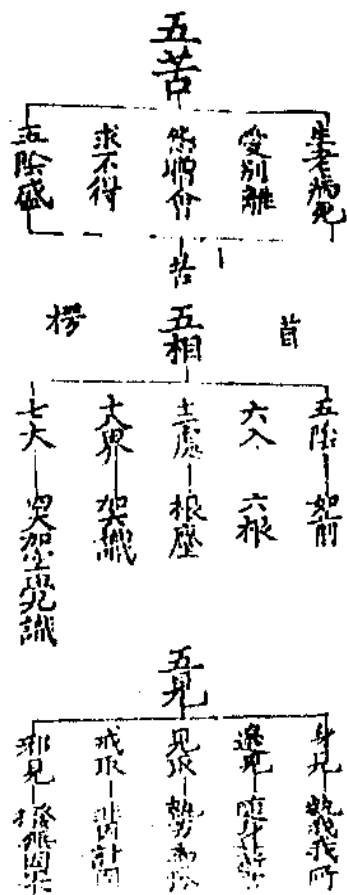 五苦
生老病死
愛別離
怨憎會
求不得
五陰盛
苦
五相
首
楞
五陰 如前
六入 六根
十二處 根塵
十八界 加六識
七大 四大加空見識
五見
身見 執我我所
邊見
見取
戒取 非因計因
邪見 撥無因果